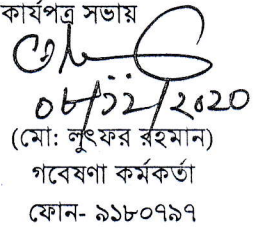 কার্যপত্র সভায়
০৮/১২/২০২০
(মো: লুৎফর রহমান)
গবেষণা কর্মকর্তা
ফোন- ৯১৮০৭৯৭